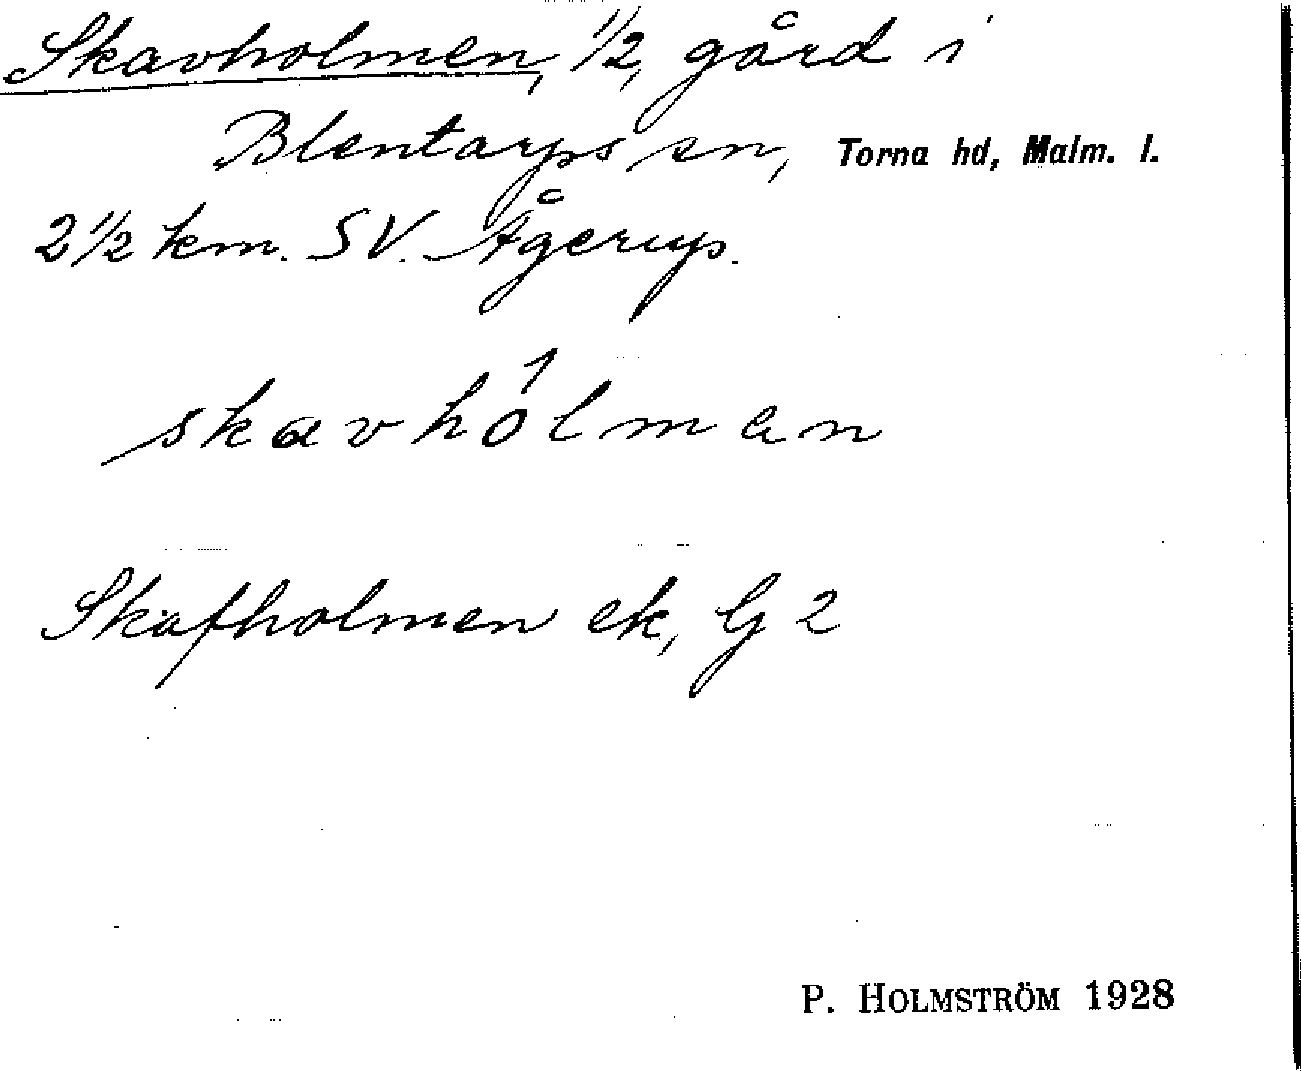 Skavholmen, 1/2, gård i
Blentarps sn, Torna hd, Malm. l.
2 1/2 km. SV. Ågerup.
skavhólman
Skafholmen ek, G 2
P. HOLMSTRÖM 1928